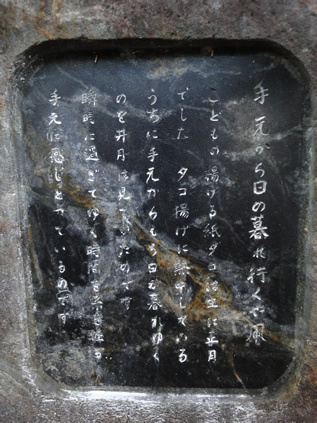 手元から日の暮れ行くや凧
こどもの揚げる紙ダコ
でした タコ揚げに熱中している
うちに手元からもう日が暮れゆく
のを井月は見ていたのです
瞬時に過ぎてゆく時間を
手元に感じとっているのです